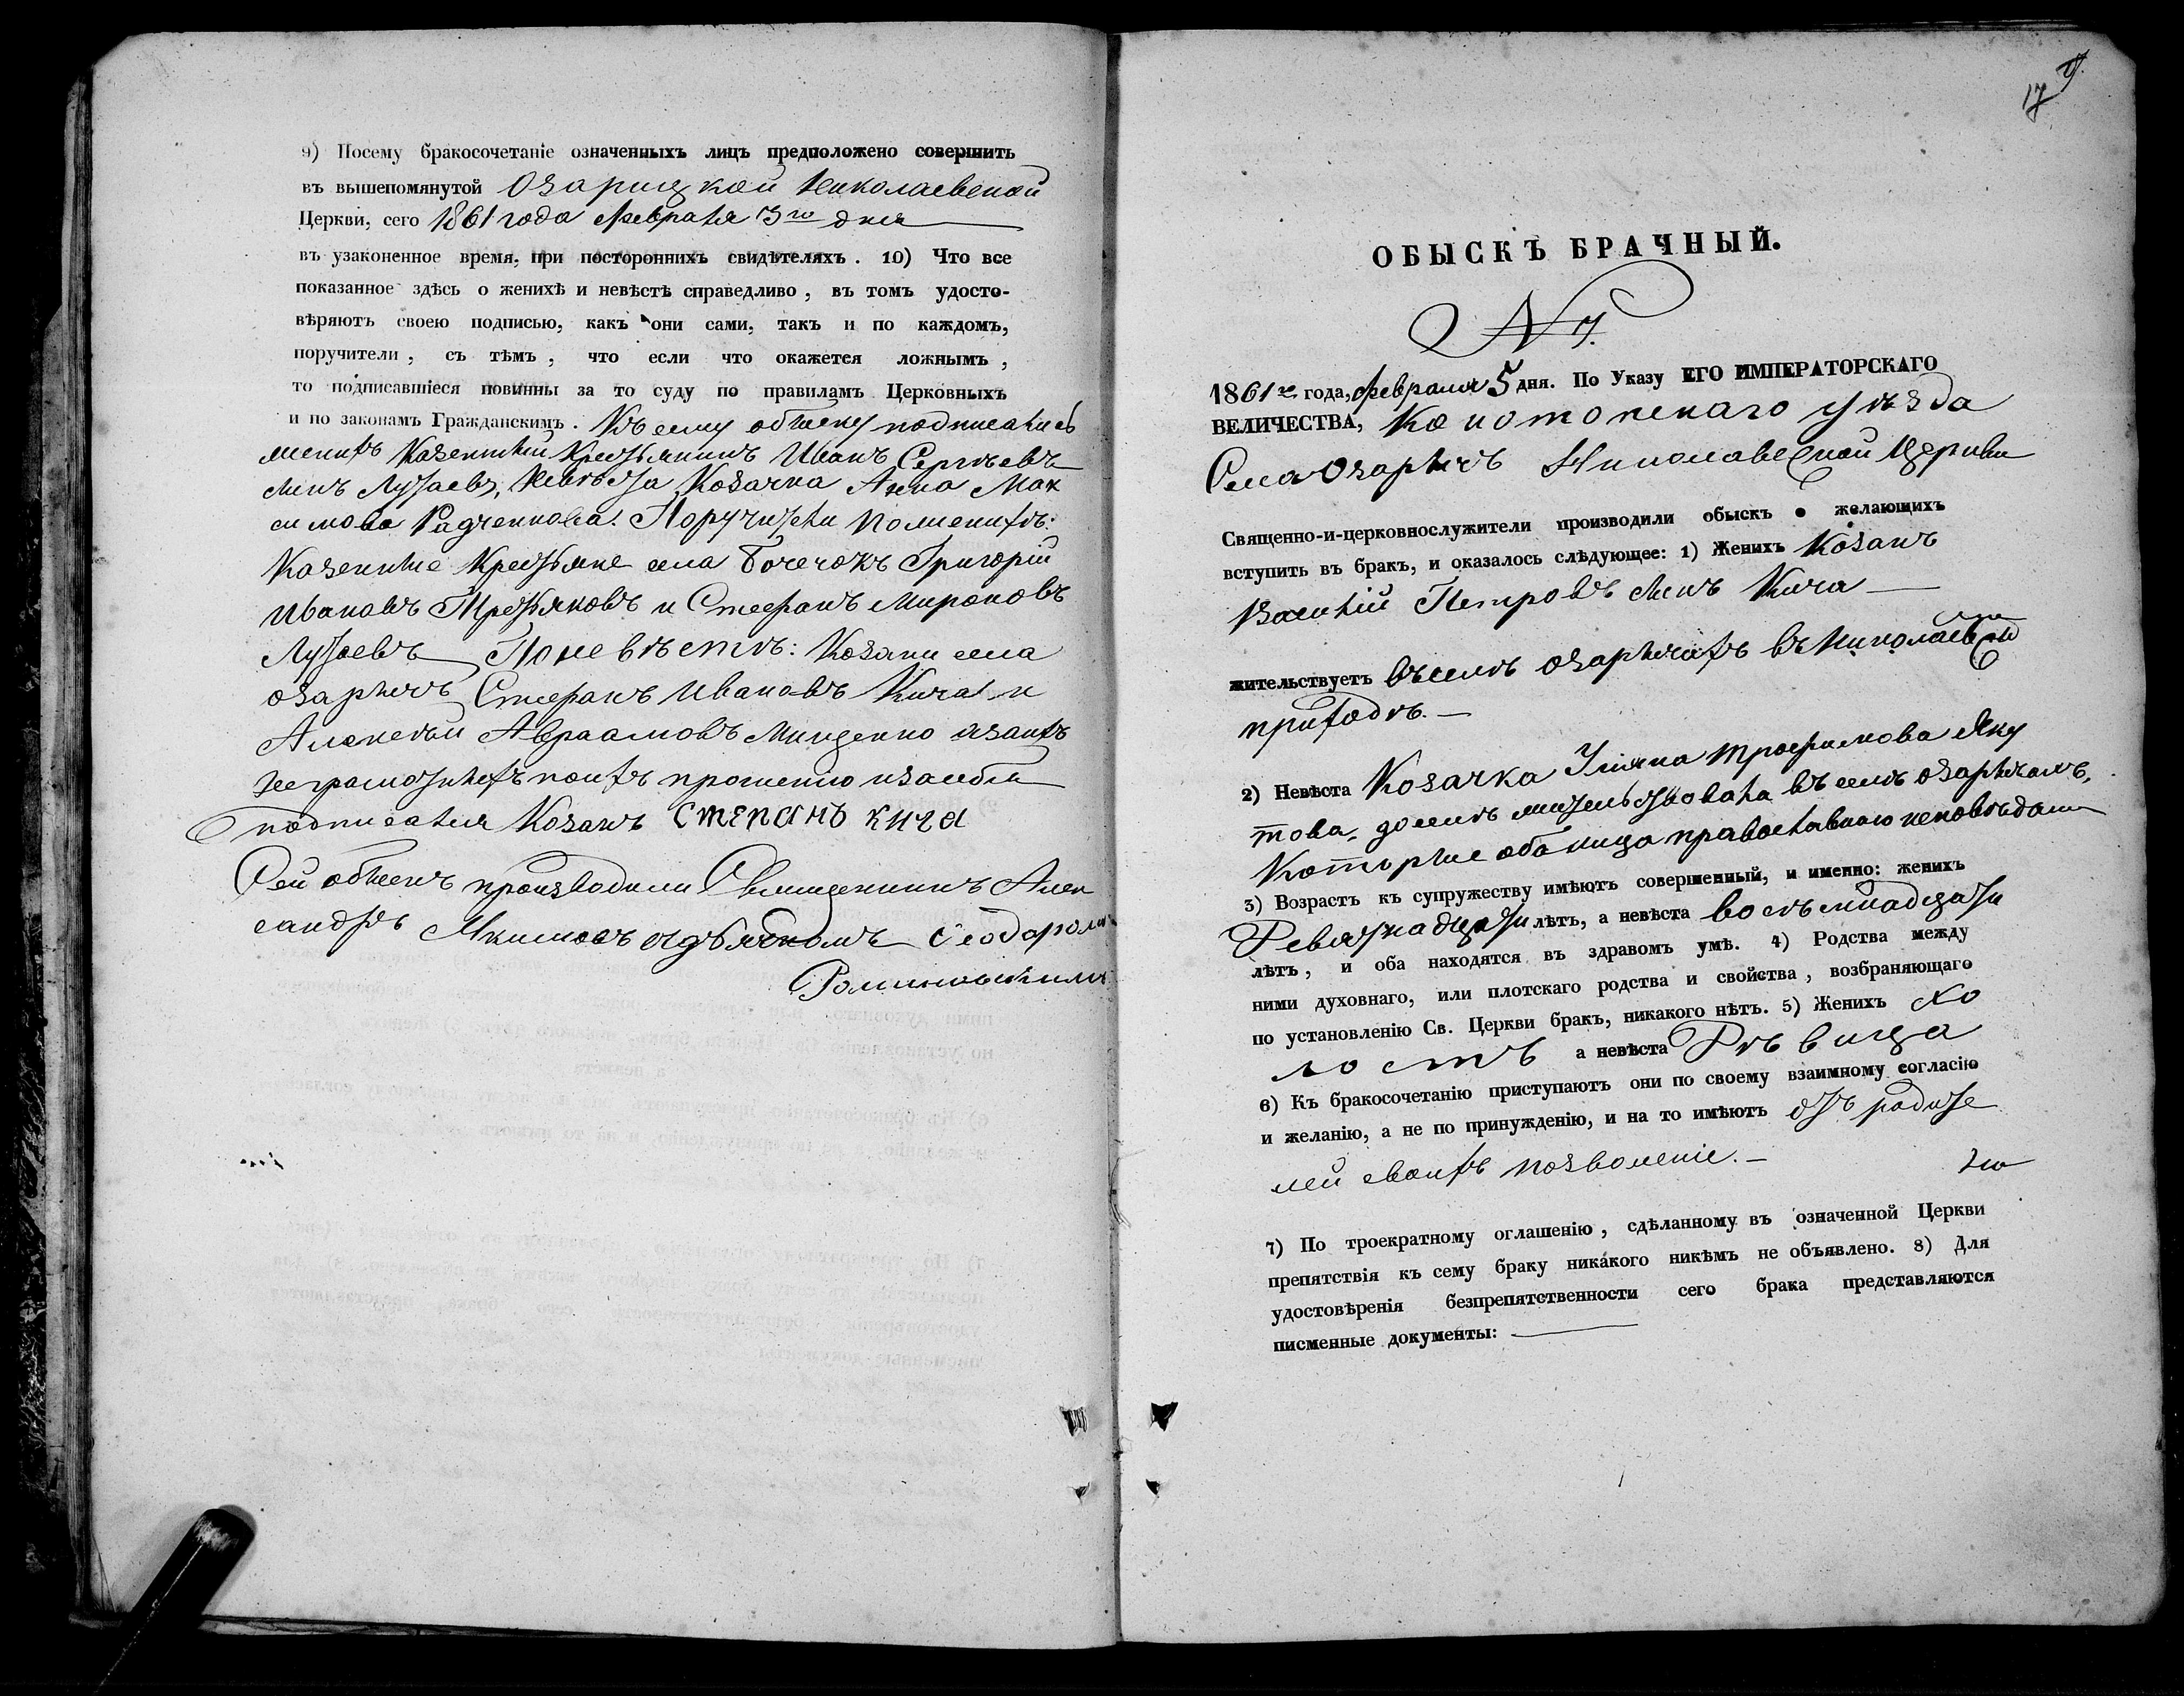 9) Посему бракосочетаніе означенныхъ лицъ предположено совершить
въ вышепомянутой Озарицкой Николаевской
Церкви, сего 1861 года Февраля 3го дня
въ узаконенное время, при постороннихъ свидѣтеляхъ. 10) Что все
показанное здѣсь о женихѣ и невѣстѣ справедливо, въ томъ удосто-
вѣряютъ своею подписью, какъ они сами, такъ и по каждомъ,
поручители, съ тѣмъ, что если что окажется ложнымъ,
то подписавшіеся повинны за то суду по правиламъ Церковныхъ
и по законамъ Гражданскимъ. Къ сему обыску подписались
женихъ Казенный Крестьянинъ Иванъ Сергѣевъ
сынъ Лутаевъ, Невѣста Козачка Анна Мак
симова Радченкова. Поручители по женихѣ:
Казенные Крестьяне села Бочечокъ Григорій
Ивановъ Третьяковъ и Стефанъ Мироновъ
Лутаевъ По невѣстѣ: Козаки села
озарычъ Стефанъ Ивановъ Кича и
Алексѣй Авраамовъ Мищенко а за нихъ
неграмотныхъ по ихъ прошенію и за себя
подписался Козакъ степанъ кича
Сей обыскъ производили Священникъ Алек
сандръ Якимовъ съ дьячкомъ Ѳеодоромъ
17
ОБЫСКЪ БРАЧНЫЙ.
N 7.
1861го года, Февраля 5 дня. По Указу ЕГО ИМПЕРАТОРСКАГО
ВЕЛИЧЕСТВА, Конотопскаго уѣзда
Села Озарычъ Николаевской Церкви
Священно-и-церковнослужители производили обыскъ о желающихъ
вступить въ бракъ, и оказалось слѣдующее: 1) Женихъ Козакъ
Василій Петровъ сынъ Кича
жительствуетъ въ селѣ озарычахъ въ Николаевскомъ
приходѣ.
2) Невѣста Козачка Ульяна Трофимова Яку
това, доселѣ жительствовала въ селѣ озарычахъ,
Которые оба лица православного исповѣданія
3) Возрастъ къ супружеству имѣютъ совершенный, и именно: женихъ
Девятнадцати лѣтъ, а невѣста восьмнадцати
лѣтъ, и оба находятся въ здравомъ умѣ. 4) Родства между
ними духовнаго, или плотскаго родства и свойства, возбраняющаго
по установленію Св. Церкви бракъ, никакого нѣтъ. 5) Женихъ Хо
лостъ а невѣста Дѣвица
6) Къ бракосочетанію приступаютъ они по своему взаимному согласію
и желанію, а не по принужденію, и на то имѣютъ отъ родите
лей своихъ позволеніе.
7) По троекратному оглашенію, сдѣланному въ означенной Церкви
препятствія къ сему браку никакого никѣмъ не объявлено. 8) Для
удостовѣренія безпрепятственности сего брака представляются
писменные документы: